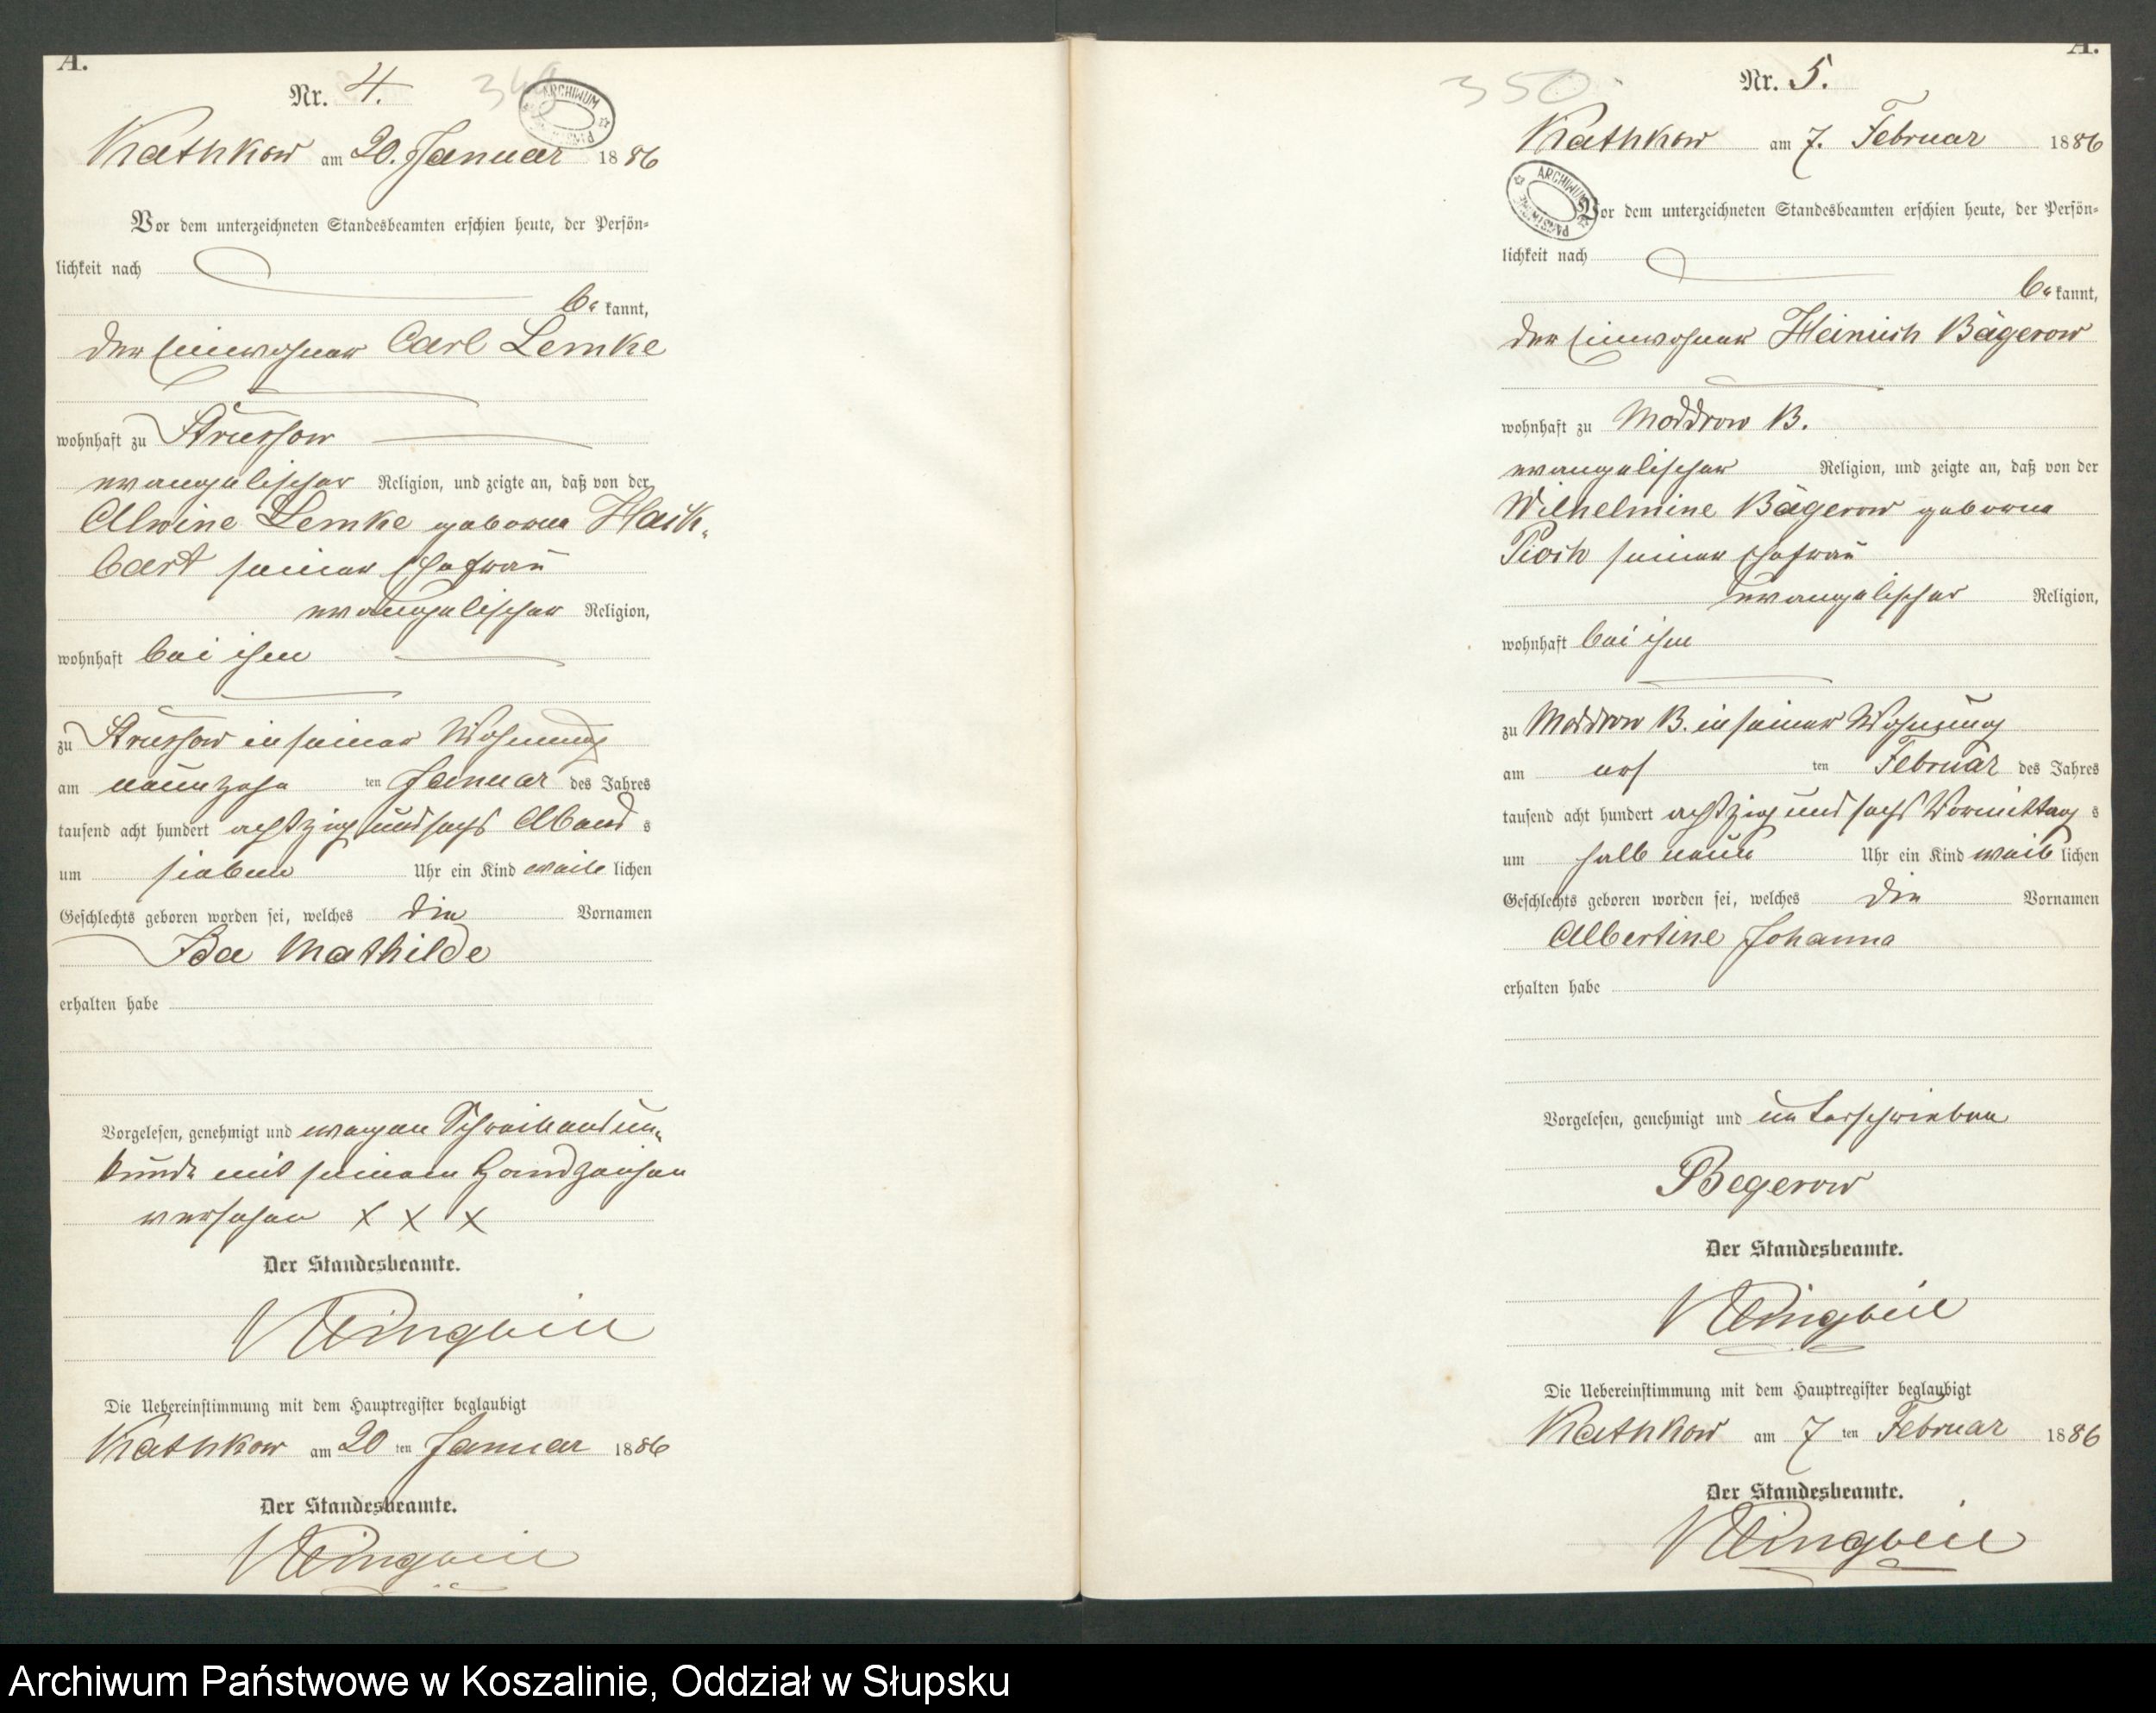 A.
Nr. 4.
349
ARCHIWUM
Kathkow am 20. Januar 1886
Vor dem unterzeichneten Standesbeamten erschien heute, der Persön-
lichkeit nach
be kannt,
der Einwohner Carl Lemke
wohnhaft zu Strussow
evangelischer Religion, und zeigte an, daß von der
Alwine Lemke geborne Hack-
bart seiner Ehefrau
evangelischer Religion,
wohnhaft bei ihm
zu Strussow in seiner Wohnung
am neunzehn ten Januar des Jahres
tausend acht hundert achtzig und sechs Abend s
um sieben Uhr ein Kind weib lichen
Geschlechts geboren worden sei, welches die Vornamen
Ida Mathilde
erhalten habe
Vorgelesen, genehmigt und wegen Schreibensun-
kunde mit seinem Handzeichen
versehen X X X
Der Standesbeamte.
Klingbeil
Die Uebereinstimmung mit dem Hauptregister beglaubigt
Kathkow am 20 ten Januar 1886
Der Standesbeamte.
Klingbeil
A.
Nr. 5.
350
Kathkow am 7. Februar 1886
ARCHIWUM
Vor dem unterzeichneten Standesbeamten erschien heute, der Persön-
lichkeit nach
be kannt,
der Einwohner Heinrich Bägerow
wohnhaft zu Moddrow B.
evangelischer Religion, und zeigte an, daß von der
Wilhelmine Bägerow geborne
Pioch seiner Ehefrau
evangelischer Religion,
wohnhaft bei ihm
zu Moddrow B. in seiner Wohnung
am ten Februar des Jahres
tausend acht hundert achtzig und sechs Vormittag s
um halb neun Uhr ein Kind weib lichen
Geschlechts geboren worden sei, welches die Vornamen
Albertine Johanna
erhalten habe
Vorgelesen, genehmigt und unterschrieben
Begerow
Der Standesbeamte.
Klingbeil
Die Uebereinstimmung mit dem Hauptregister beglaubigt
Kathkow am 7 ten Februar 1886
Der Standesbeamte.
Klingbeil
Archiwum Państwowe w Koszalinie, Oddział w Słupsku